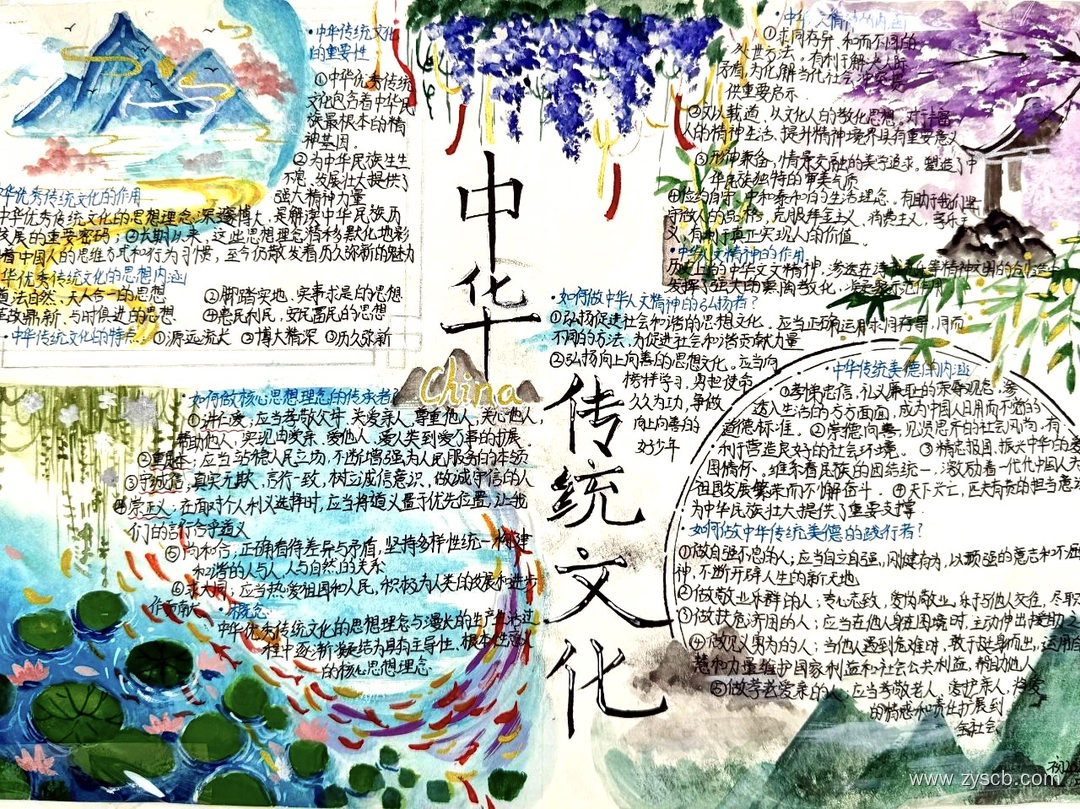 ·中华传统文化
的重要性
①中华优秀传统
文化包含着中华民
族最根本的精
神基因。
②为中华民族生生
不息、发展壮大提供了
强大精神力量
华优秀传统文化的作用
中华优秀传统文化的思想理念深邃博大，是解读中华民族历
发展的重要密码；②长期以来，这些思想理念潜移默化地影
着中国人的思维方式和行为习惯，至今仍散发着历久弥新的魅力
华优秀传统文化的思想内涵
道法自然、天人合一的思想 ②脚踏实地、实事求是的思想
革故鼎新、与时俱进的思想 ④惠民利民、安民富民的思想
·中华传统文化的特点：①源远流长 ②博大精深 ③历久弥新
中华
China
传统文化
如何做核心思想理念的传承者
①讲仁爱，应当孝敬父母，关爱亲人，尊重他人，关心他人，
帮助他人，实现由爱亲、爱他人、爱人类到爱万事的扩展。
②重民本；应当站稳人民立场，不断增强为人民服务的本领
③守诚信，真实无欺、言行一致，树立诚信意识，做诚守信的人
④崇正义：在面对个人利义选择时，应当将道义置于优先位置，让我
们的言行合乎道义
⑤尚和合，正确看待差异与矛盾，坚持多样性统一，构建
和谐的人与人、人与自然的关系
⑥求大同，应当热爱祖国和人民，积极为人类的发展和进步
作贡献
·概念
中华优秀传统文化的思想理念与漫长的生产生活过
程中逐渐凝结为具有主导性、根本性意义
的核心思想理念
·中华人文精神的内涵
①求同存异、和而不同的
处世方法，有利于解决人际
矛盾，为化解当代社会冲突提
供重要启示
②文以载道、以文化人的教化思想，对丰富
人的精神生活、提升精神境界具有重要意义
③形神兼备、情景交融的美学追求，塑造了中
华民族独特的审美气质
④俭约自守、中和泰和的生活理念，有助于我们坚
守做人的品格，克服拜金主义、消费主义、享乐主
义，有利于真正实现人的价值
·中华人文精神的作用
·如何做中华人文精神的弘扬者？
①弘扬促进社会和谐的思想文化，应当正确运用求同存异、同而
不同的方法，为促进社会和谐贡献力量
②弘扬向上向善的思想文化。应当向
榜样学习，勇担使命
久久为功，争做
向上向善的
好少年
中华传统美德的内涵
①孝悌忠信、礼义廉耻的荣辱观念，渗
透入生活的方方面面，成为中国人日用而不觉的
道德标准。②崇德向善、见贤思齐的社会风尚，有
利于营造良好的社会环境。③精忠报国、振兴中华的爱
国情怀。维系着民族的团结统一，激励着一代代中国人为
祖国发展繁荣而不懈奋斗。④天下兴亡、匹夫有责的担当意
为中华民族壮大提供了重要支撑
·如何做中华传统美德的践行者？
①做自强不息的人；应当自立自强，刚健有为，以顽强的意志和不屈
神，不断开辟人生的新天地
②做敬业乐群的人；专心志致，爱岗敬业，乐于与他人交往，尽职
③做扶危济困的人；应当在他人身在困境时，主动伸出援助之
④做见义勇为的人；当他人遇到危难时，敢于挺身而出，运用自
慧和力量维护国家利益和社会公共利益，帮助他人
⑤做孝老爱亲的人；应当孝敬老人、爱护亲人，将爱
的情感和责任扩展到
全社会
www.zyscb.com